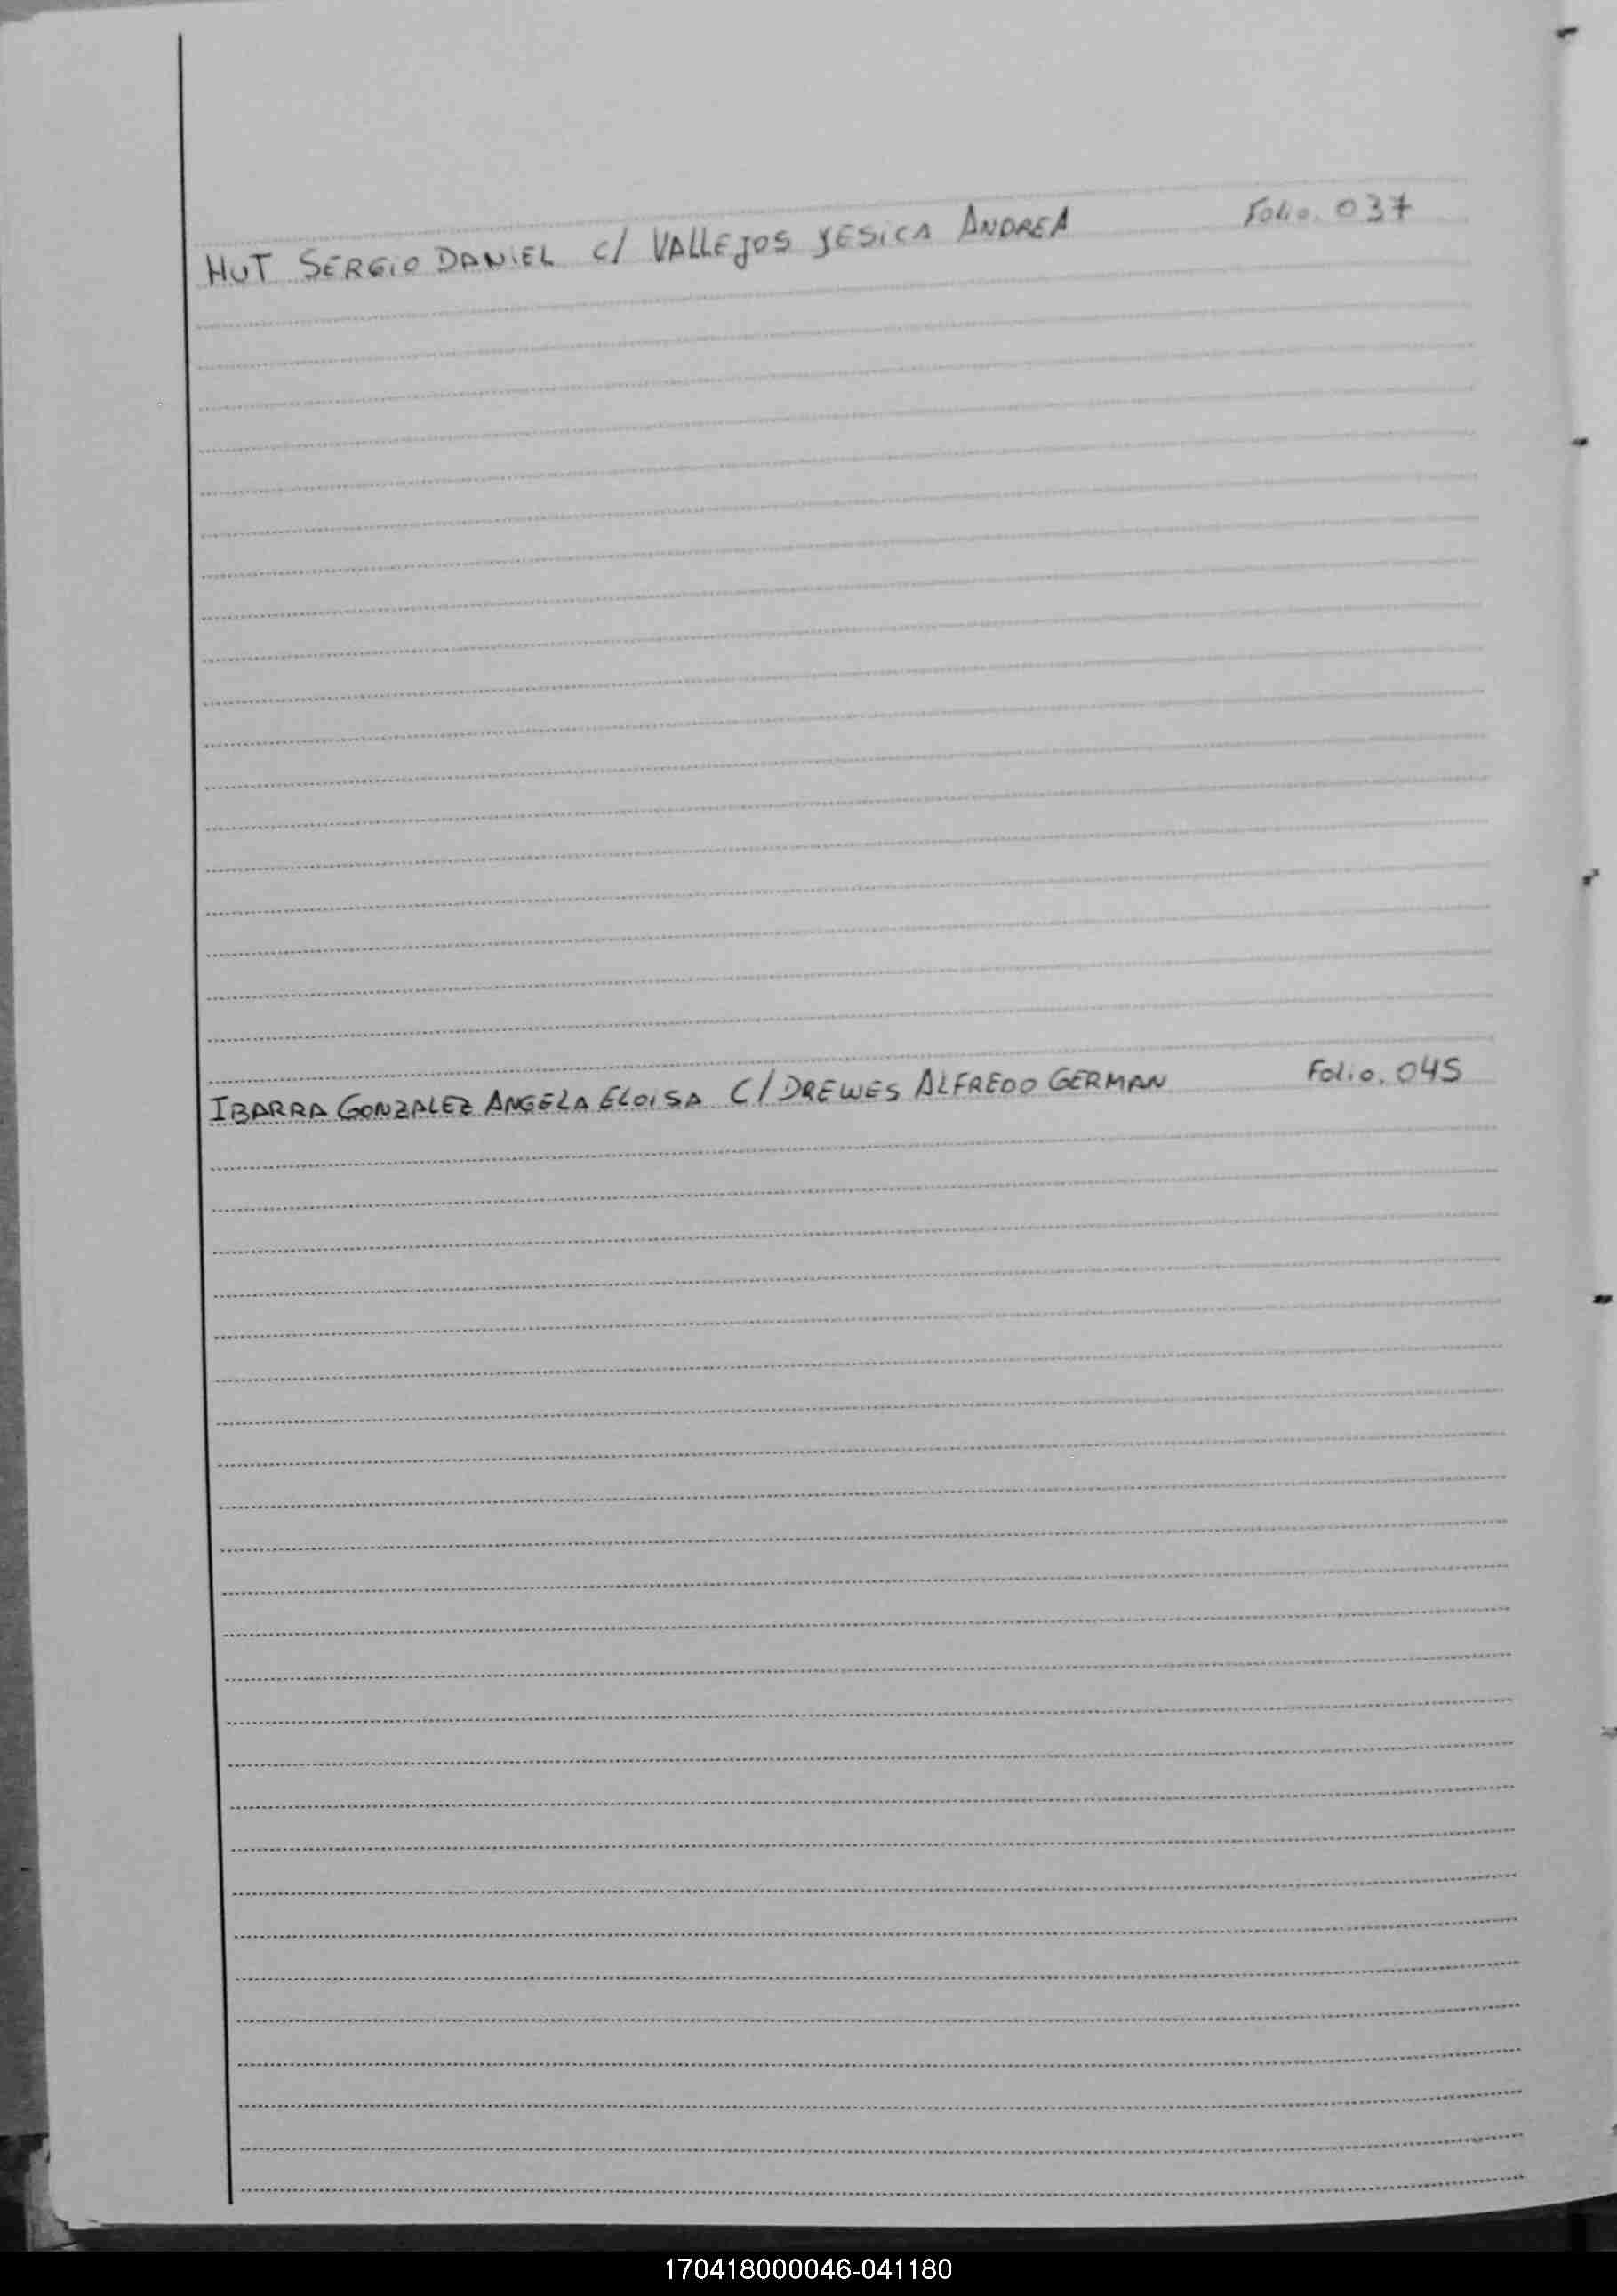 HUT SERGIO DANIEL C/ VALLEJOS YESICA ANDREA Folio. 037
IBARRA GONZALEZ ANGELA ELOISA C/ DREWES ALFREDO GERMAN Folio. 045
170418000046-041180